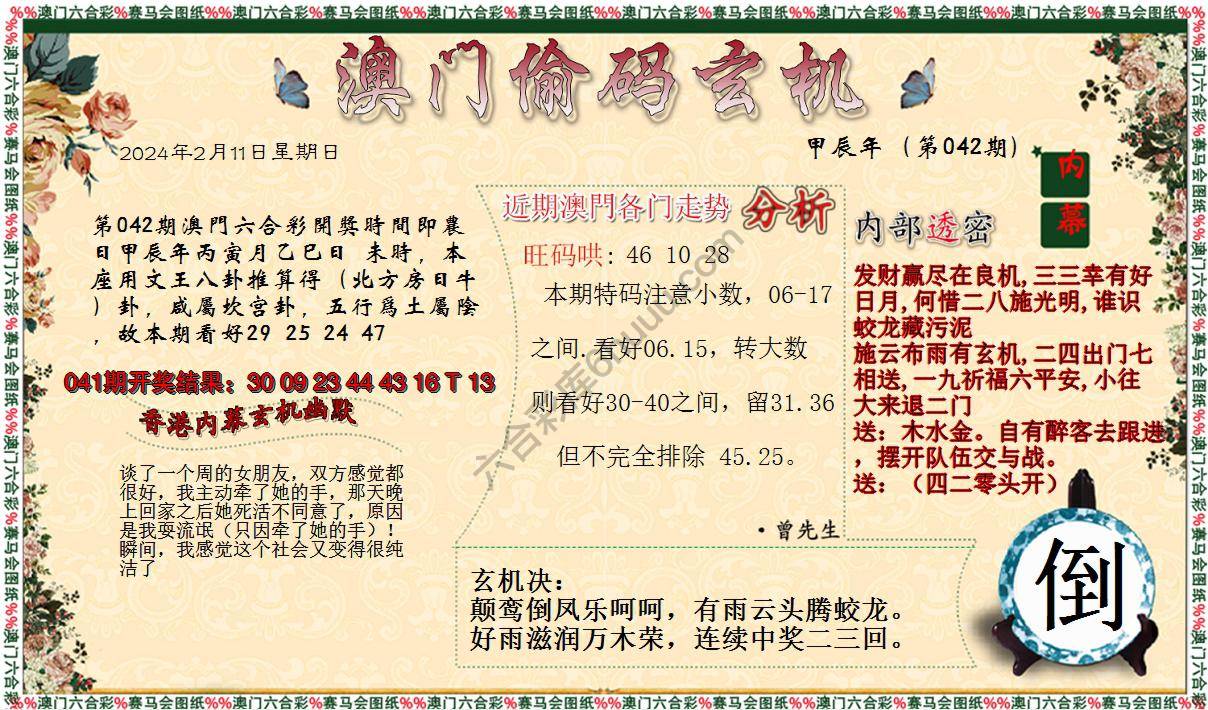 %%澳门六合彩%赛马会图纸%%澳门六合彩%赛马会图纸%%澳门六合彩%赛马会图纸%%澳门六合彩%赛马会图纸%%澳门六合彩%赛马会图纸%%澳门六合彩%赛马会图纸%%
澳门偷码玄机
2024年2月11日星期日
甲辰年（第042期）
内
幕
第042期澳門六合彩開獎時間即農
日甲辰年丙寅月乙巳日 未時，本
座用文王八卦推算得（北方房日牛
）卦，咸屬坎宫卦，五行爲土屬陰
，故本期看好29 25 24 47
041期开奖结果：30 09 23 44 43 16 T 13
香港内幕玄机幽默
谈了一个周的女朋友，双方感觉都
很好，我主动牵了她的手，那天晚
上回家之后她死活不同意了，原因
是我耍流氓（只因牵了她的手）！
瞬间，我感觉这个社会又变得很纯
洁了
近期澳門各门走势 分析
旺码哄: 46 10 28
本期特码注意小数，06-17
之间.看好06.15，转大数
则看好30-40之间，留31.36
但不完全排除 45.25。
·曾先生
内部透密
发财赢尽在良机,三三幸有好
日月,何惜二八施光明,谁识
蛟龙藏污泥
施云布雨有玄机,二四出门七
相送,一九祈福六平安,小往
大来退二门
送：木水金。自有醉客去跟进
，摆开队伍交与战。
送：（四二零头开）
玄机决：
颠鸾倒凤乐呵呵，有雨云头腾蛟龙。
好雨滋润万木荣，连续中奖二三回。
倒